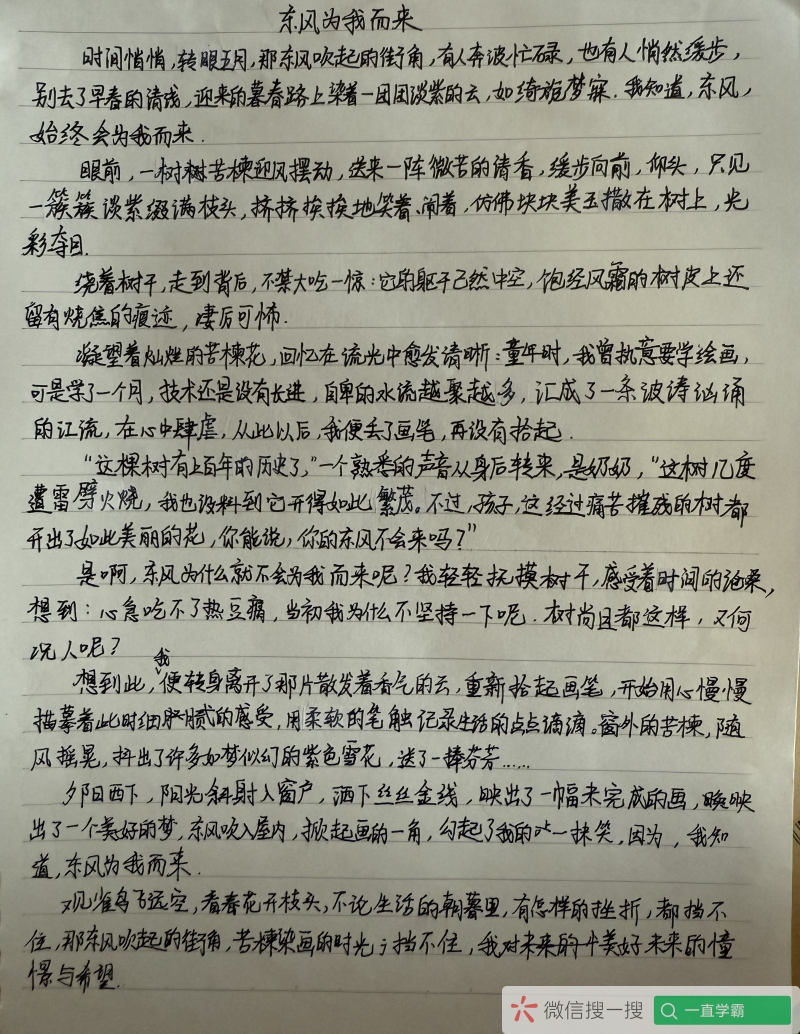 东风为我而来
时间悄悄,转眼五月,那东风吹起的街角,有人奔波忙碌,也有人悄然缓步,
别去了早春的清浅,迎来的暮春路上染着一团团淡紫的云,如绮旎梦寐.我知道,东风,
始终会为我而来.
眼前,一树树苦楝迎风摆动,送来一阵微苦的清香,缓步向前,仰头,只见
一簇簇淡紫缀满枝头,挤挤挨挨地笑着、闹着,仿佛块块美玉撒在树上,光
彩夺目.
绕着树干,走到背后,不禁大吃一惊:它的躯干已然中空,饱经风霜的树皮上还
留有烧焦的痕迹,凄后可怖.
凝望着灿烂的苦楝花,回忆在流光中愈发清晰:童年时,我曾执意要学绘画,
可是学了一个月,技术还是没有长进,自卑的水流越聚越多,汇成了一条波涛汹涌
的江流,在心中肆虐,从此以后,我便丢了画笔,再没有拾起.
“这棵树有上百年的历史了,”一个熟番的声音从身后转来,是奶奶,“这树几度
遭雷劈火烧,我也没料到它开得如此繁茂。不过,孩子,这经过痛苦摧残的树都
开出了如此美丽的花,你能说,你的东风不会来吗?”
是啊,东风为什么就不会为我而来呢?我轻轻抚摸树干,感受着时间的沧桑,
想到:心急吃不了热豆腐,当初我为什么不坚持一下呢.树尚且都这样,又何
况人呢?
想到此,我便转身离开了那片散发着香气的云,重新拾起画笔,开始用心慢慢
描摹着此时细腻的感受,用柔软的笔触记录生活的点点滴滴。窗外的苦楝,随
风摇晃,抖出了许多如梦似幻的紫色雪花,送了一捧芬芳……
夕阳西下,阳光斜射入窗户,洒下丝丝金线,映出了一幅未完成的画,晚映
出了一个美好的梦,东风吹入屋内,掀起画的一角,勾起了我的一抹笑,因为,我知
道,东风为我而来.
观雀鸟飞远空,看春花开枝头,不论生活的朝暮里,有怎样的挫折,都挡不
住,那东风吹起的街角,苦楝染画的时光;挡不住,我对美好未来的憧
憬与希望.
微信搜一搜
一直学霸